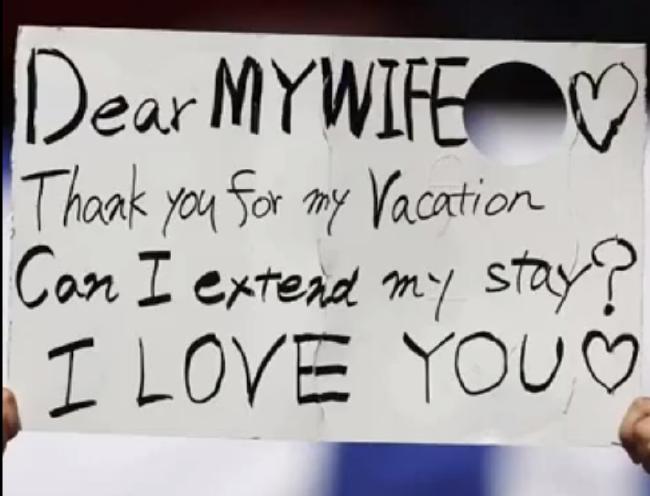 Dear MY WIFE ♡
Thank you for my Vacation
Can I extend my stay?
I LOVE YOU♡